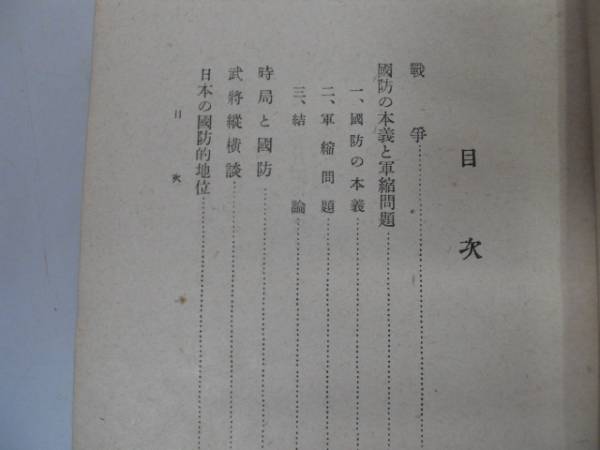 目次
戰爭
國防の本義と軍縮問題
一、國防の本義
二、軍縮問題
三、結論
時局と國防
武將縱橫談
日本の國防的地位
目次